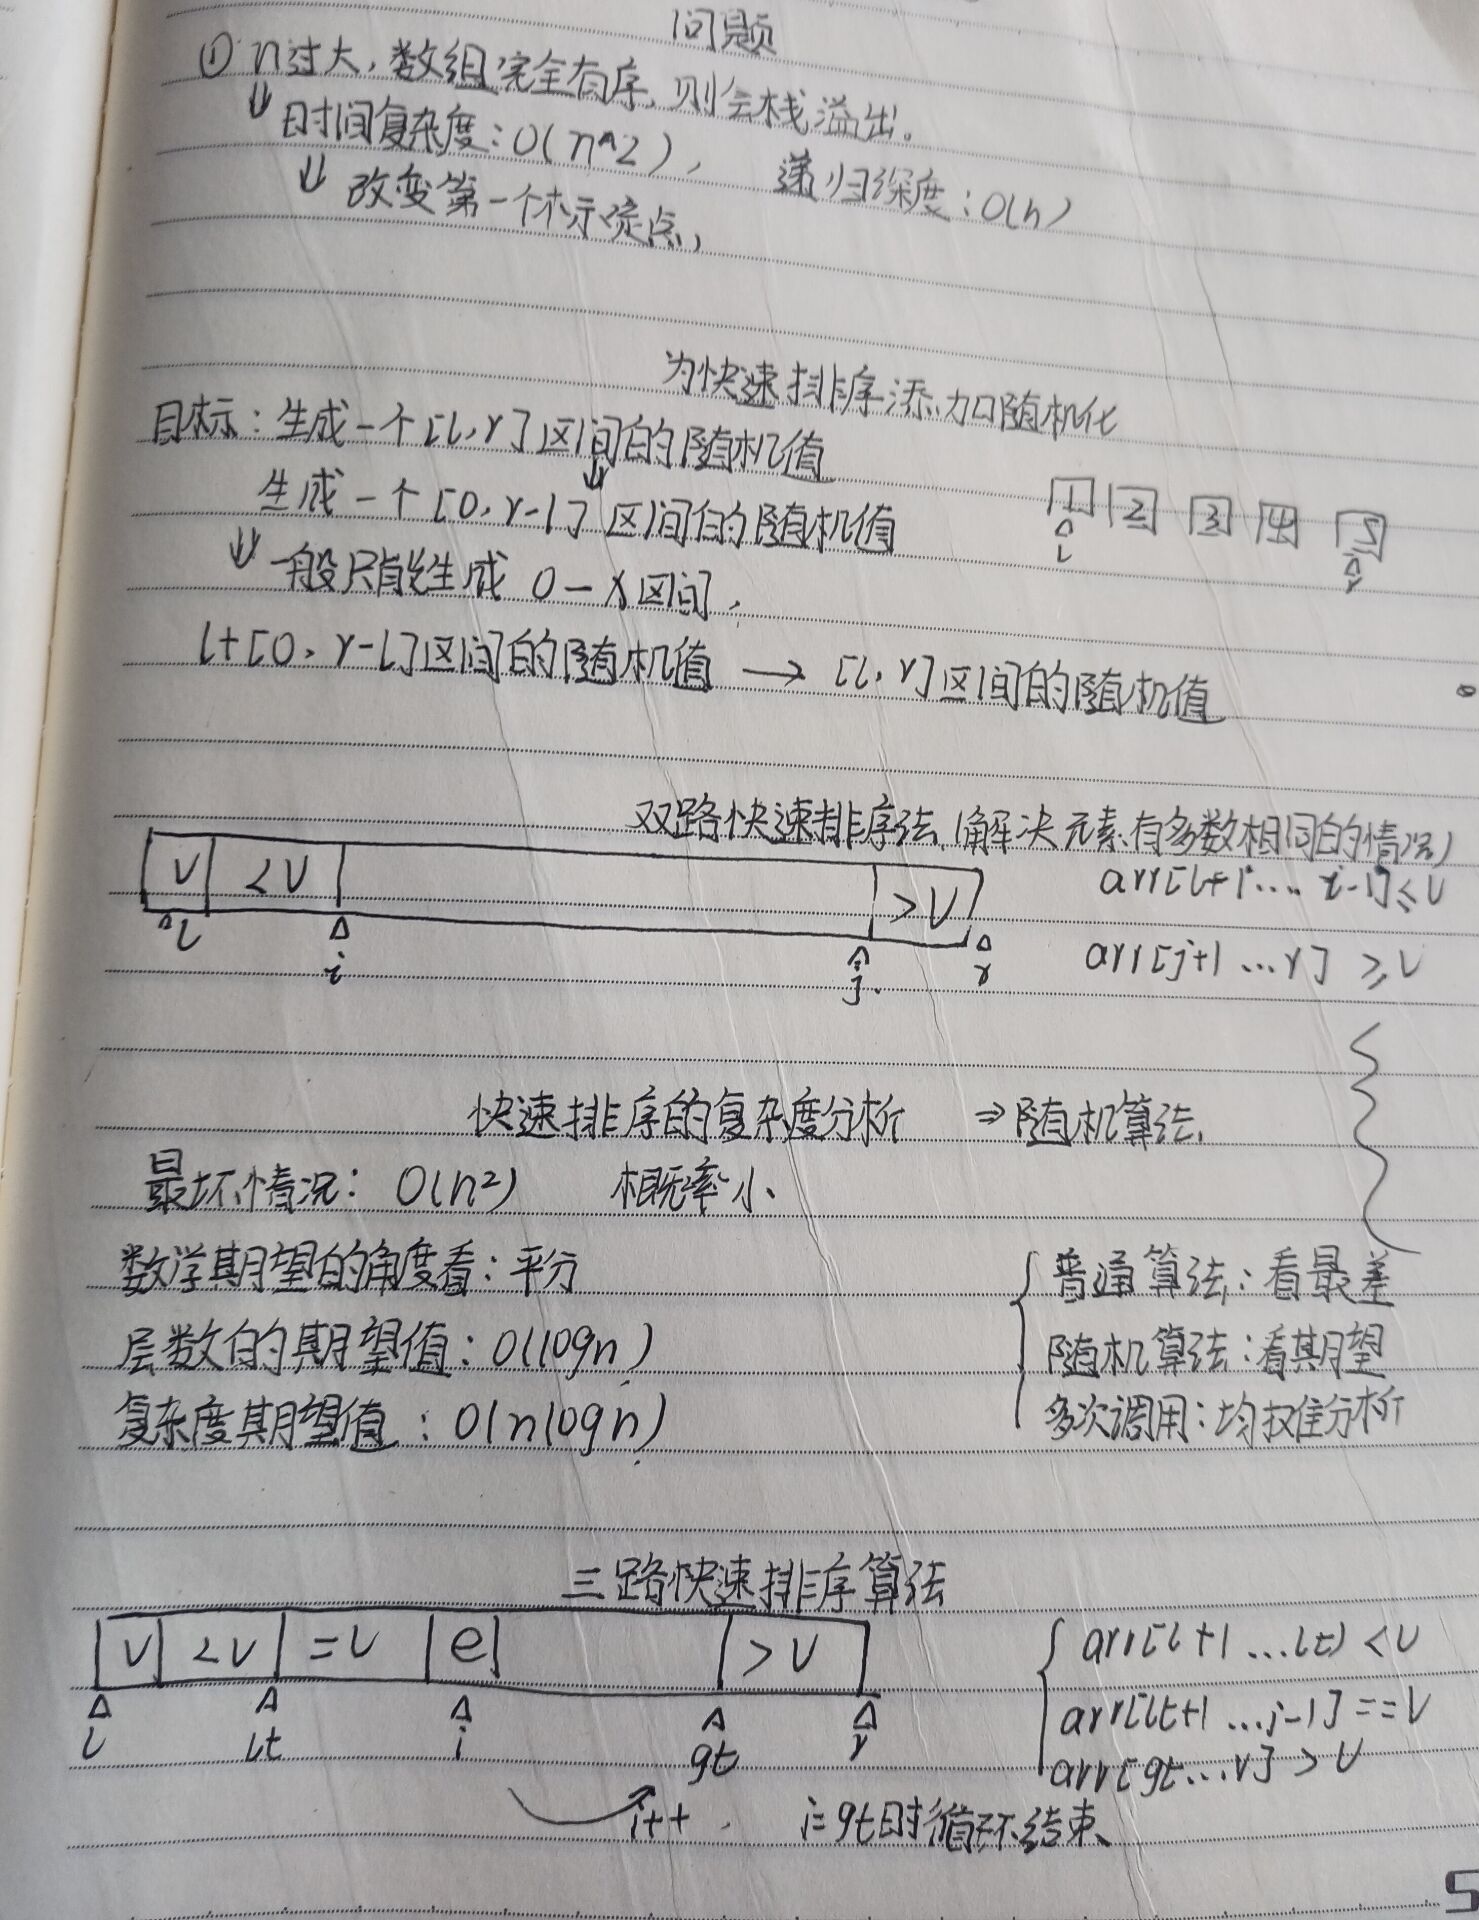 问题
① n过大,数组完全有序,则会栈溢出。
⇓ 时间复杂度:O(n^2), 递归深度:O(n)
⇓ 改变第一个标定点,
为快速排序添加随机化
目标:生成一个[l,r]区间的随机值
⇓
生成一个[0,r-l]区间的随机值
1 2 3 4 5
l r
⇓ 一般只能生成 0-x区间,
l+[0,r-l]区间的随机值 → [l,r]区间的随机值
双路快速排序法(解决元素有多数相同的情况)
V <V >V
l i j r
arr[l+1....i-1]≤V
arr[j+1...r] ≥V
快速排序的复杂度分析 ⇒随机算法
最坏情况:O(n²) 概率小
数学期望的角度看:平分
层数的期望值:O(logn)
复杂度期望值:O(nlogn)
普通算法:看最差
随机算法:看期望
多次调用:均摊分析
三路快速排序算法
V <V =V e >V
l lt i gt r
arr[l+1...lt] <V
arr[lt+1...i-1]==V
arr[gt...r] >V
i++ . i=gt时循环结束
5